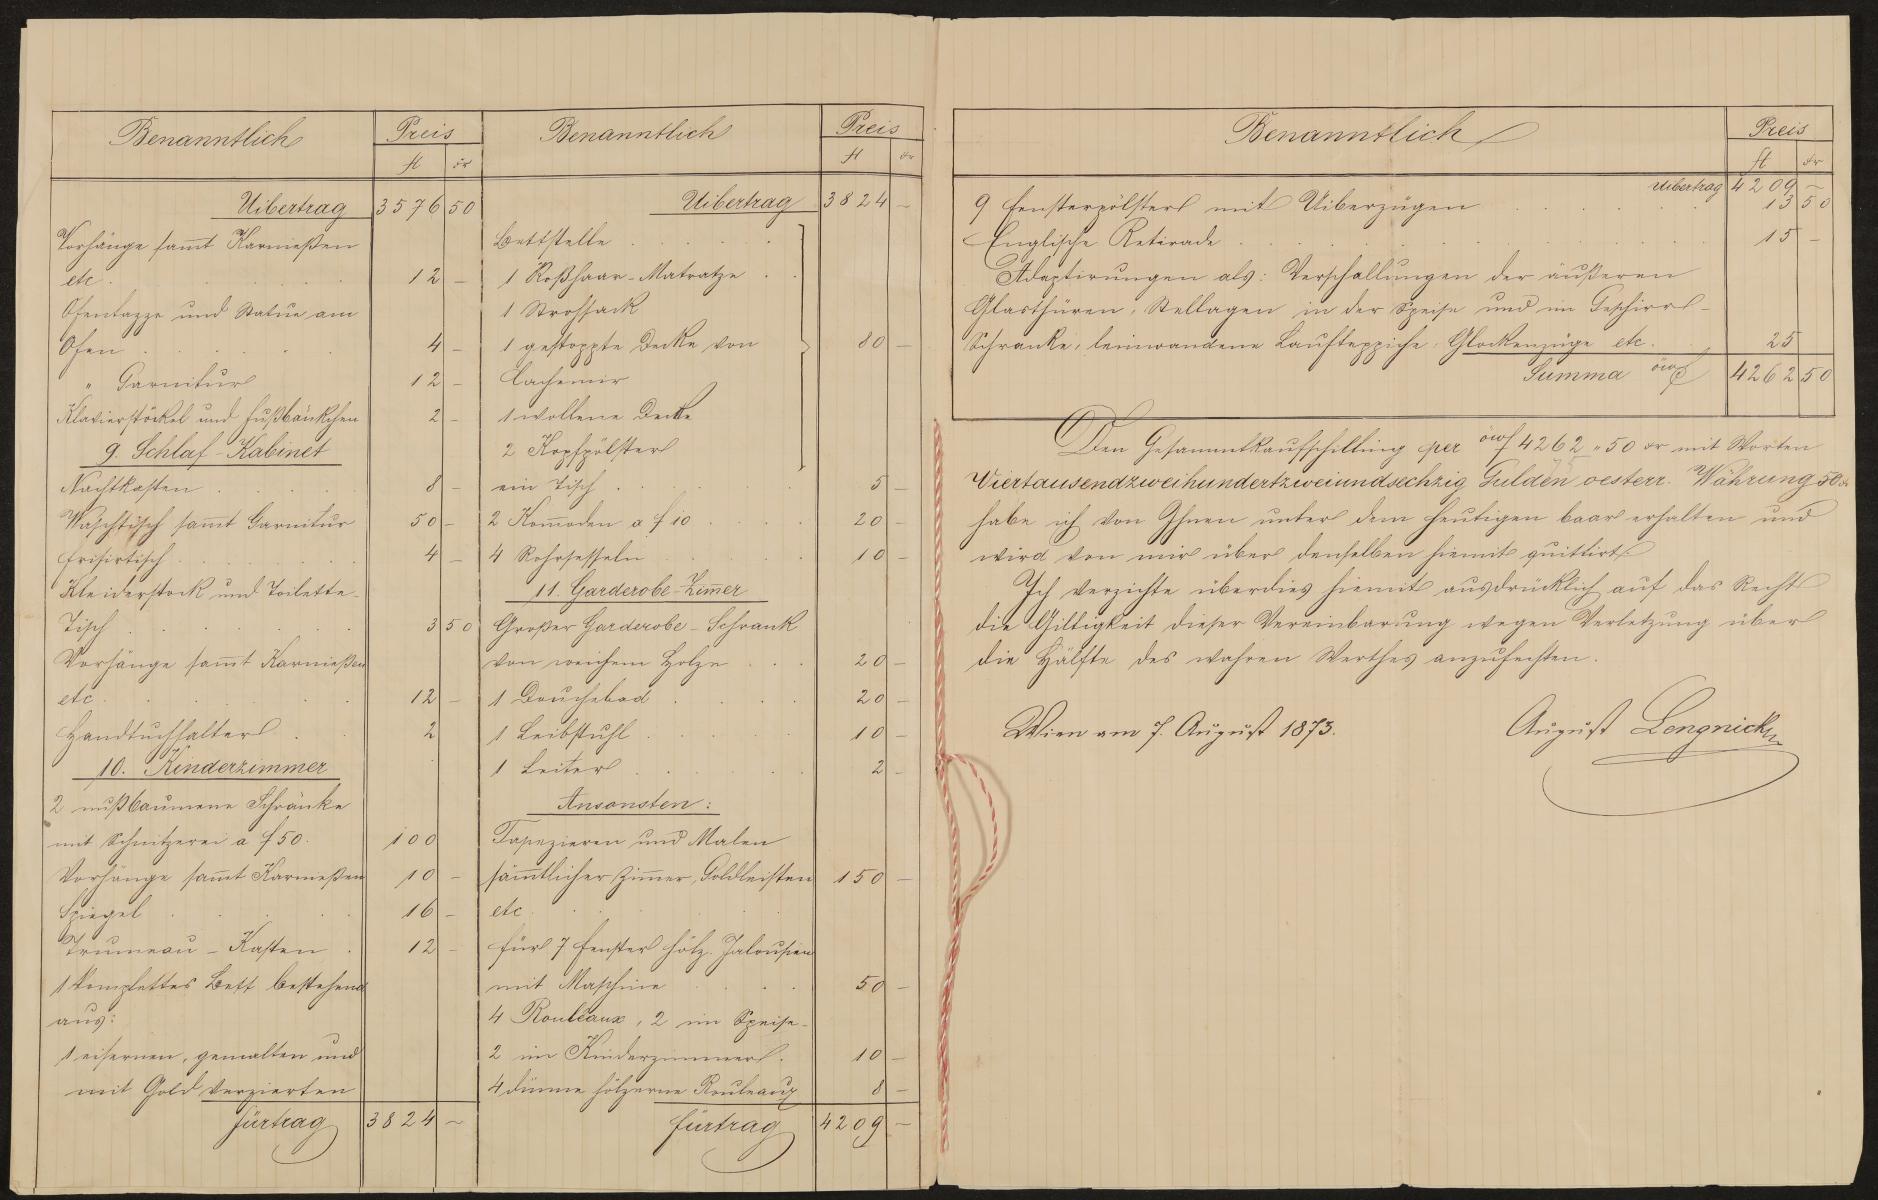 Benanntlich Preis
fl kr
Uibertrag 3576 50
Vorhänge sammt Karnießen
etc . 12 –
Ofentazze und Statue am
Ofen . 4 –
" Garnitur 12 –
Klavierstöckel und Fußbänkchen 2 –
9. Schlaf-Kabinet
Nachtkasten . 8 –
Waschtisch sammt Garnitur 50 –
Frisirtisch . 4 –
Kleiderstock und Toilette-
Tisch . 3 50
Vorhänge sammt Karnießen
etc . 12 –
Handtuchhalter . 2
10. Kinderzimmer
2 nußbaumene Schränke
mit Schnitzerei a f 50. 100
Vorhänge sammt Karnießen 10 –
Spiegel . 16 –
Trumeau-Kasten . 12 –
1 komplettes Bett bestehend
aus:
1 eisernen, gemalten und
mit Gold verzierten
Fürtrag 3824 –
Benanntlich Preis
fl kr
Uibertrag 3824 –
Bettstelle .
1 Roßhaar-Matratze .
1 Strohsack
1 gesteppte Decke von 80 –
Cachemir
1 wollene Decke
2 Kopfpölster
ein Tisch . 5 –
2 Komoden a f 10 . 20 –
4 Rohrsesseln . 10 –
11. Garderobe-Zimmer
Großer Garderobe-Schrank
von weichem Holze . 20 –
1 Douchebad . 20 –
1 Leibstuhl . 10 –
1 Leiter . 2 –
Ansonsten:
Tapezieren und Malen
sämmtlicher Zimmer, Goldleisten 150 –
etc .
für 7 Fenster hölz. Jalousien
mit Maschine . 50 –
4 Rouleaux, 2 im Speise-
2 im Kinderzimmer. 10 –
4 dünne hölzerne Rouleaux 8 –
Fürtrag 4209 –
Benanntlich Preis
fl kr
Uibertrag 4209 –
9 Fensterpölster mit Uiberzügen . 13 50
Englische Retirade . 15 –
Adaptirungen als: Verschallungen der äußeren
Glasthüren, Stellagen in der Speise und im Geschirr-
Schranke, leinwandene Laufteppiche, Glockenzüge etc. 25
Summa öwf 4262 50
Den Gesammtkaufschilling per öwf 4262 „ 50 kr mit Worten
Viertausendzweihundertzweiundsechzig Gulden oesterr. Währung 50 kr
habe ich von Ihnen unter dem heutigen baar erhalten und
wird von mir über denselben hiemit quittirt.
Ich verzichte überdies hiemit ausdrücklich auf das Recht
die Giltigkeit dieser Vereinbarung wegen Verletzung über
die Hälfte des wahren Werthes anzufechten.
Wien am 7. August 1873.
August Lengnick